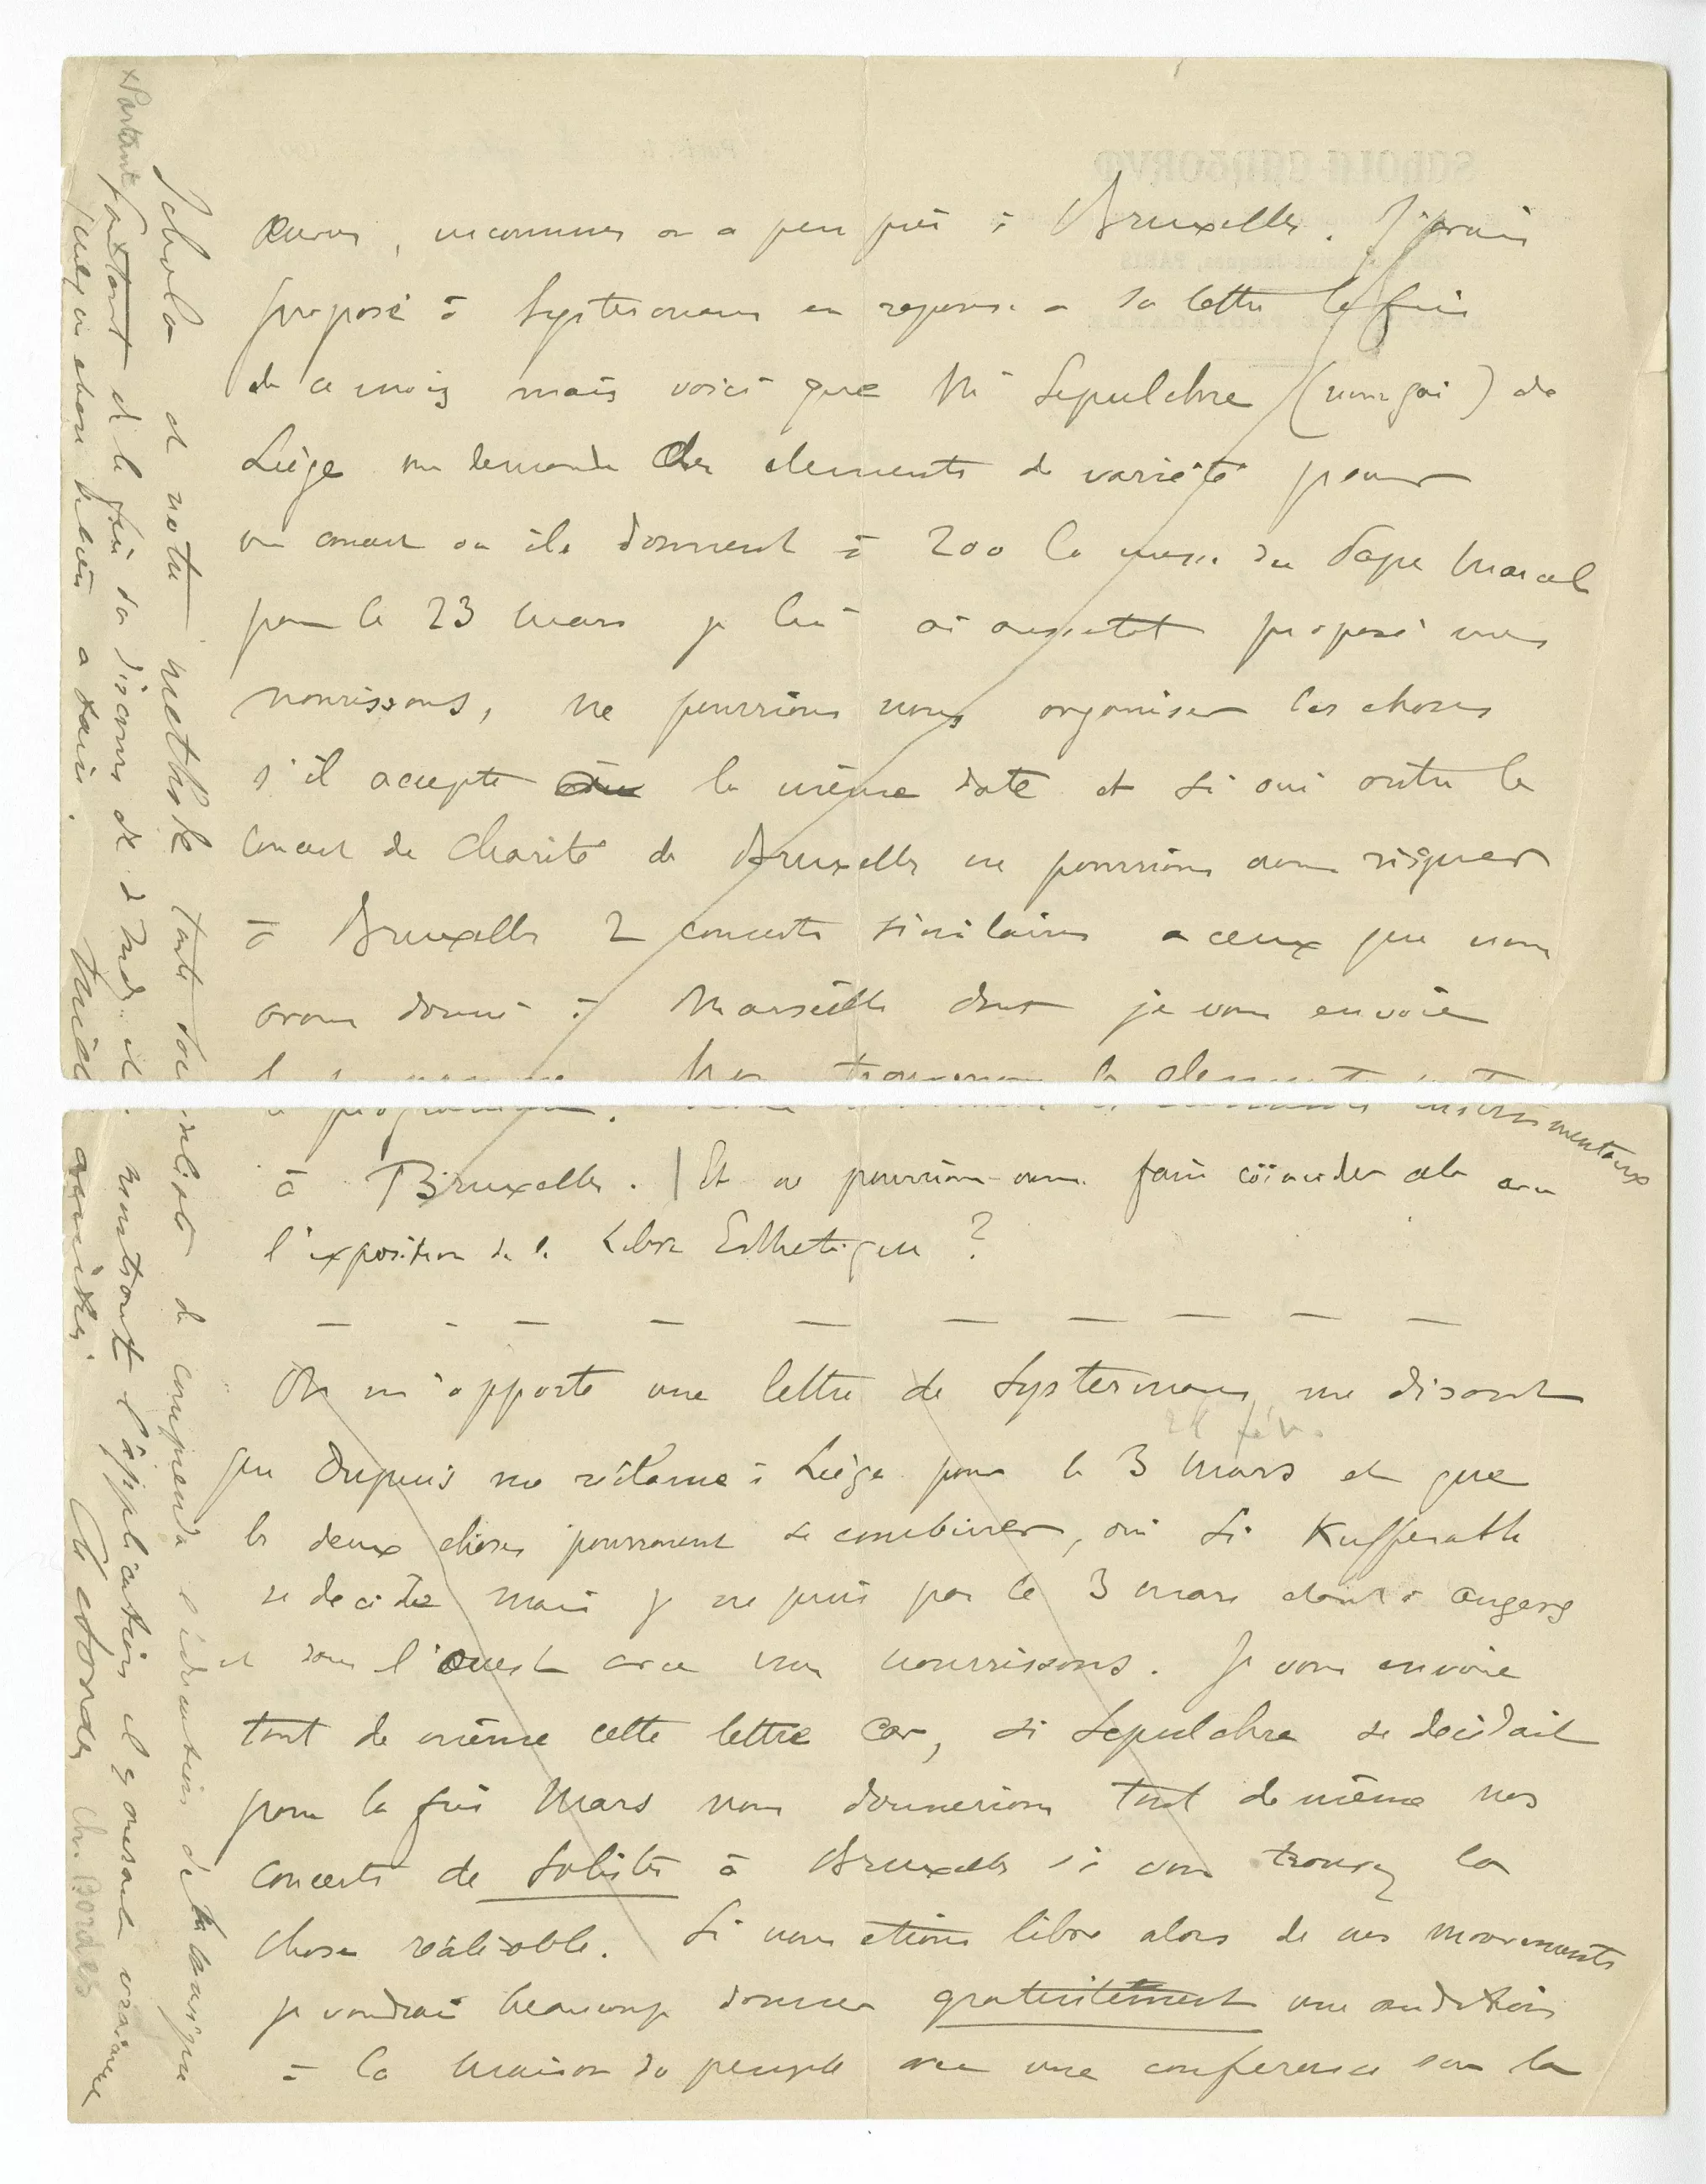 œuvres, inconnues ou a peu près à Bruxelles. J'avais
proposé à Systermans en reponse a sa lettre la fin
de ce mois mais voici que Mr Sepulchre (nom gai) de
Liège me demande des elements de variété pour
un concert ou ils donnent à 200 la messe du Pape Marcel
pour le 23 mars je lui ai aussitot proposé mes
nourrissons, ne pourrions nous organiser les choses
s'il accepte la même date et si oui outre le
Concert de Charité de Bruxelles ne pourrions nous risquer
à Bruxelles 2 concerts similaires a ceux que nous
avons donné à Marseille dont je vous envoie
le programme. Nous trouverons les elements instrumentaux
à Bruxelles. | Et ne pourrions-nous faire coïncider cela avec
l'exposition de la Libre Esthetique ?
On m'apporte une lettre de Systermans me disant
28 fév.
que Dupuis me réclame à Liège pour le 3 mars et que
les deux choses pourraient se combiner, oui si Kufferath
se decide mais je ne puis pas le 3 mars etant à Angers
et dans l'Ouest avec mes nourrissons. Je vous envoie
tout de même cette lettre car, si Sepulchre se decidait
pour la fin Mars nous donnerions tout de même nos
concerts de Solistes à Bruxelles si vous trouvez la
chose réalisable. Si nous etions libre alors de nos mouvements
je voudrais beaucoup donner gratuitement une audition
à la maison du peuple avec une conference sur la
Schola et notre methode toute socialiste de comprendre l'education de la musique
x Partant
partant de la fin du discours de d'Indy et montrant l'application il y aurait vraiment
quelque chose de bien a faire. Mille amitiés. Ch Bordes
Ch. Bordes